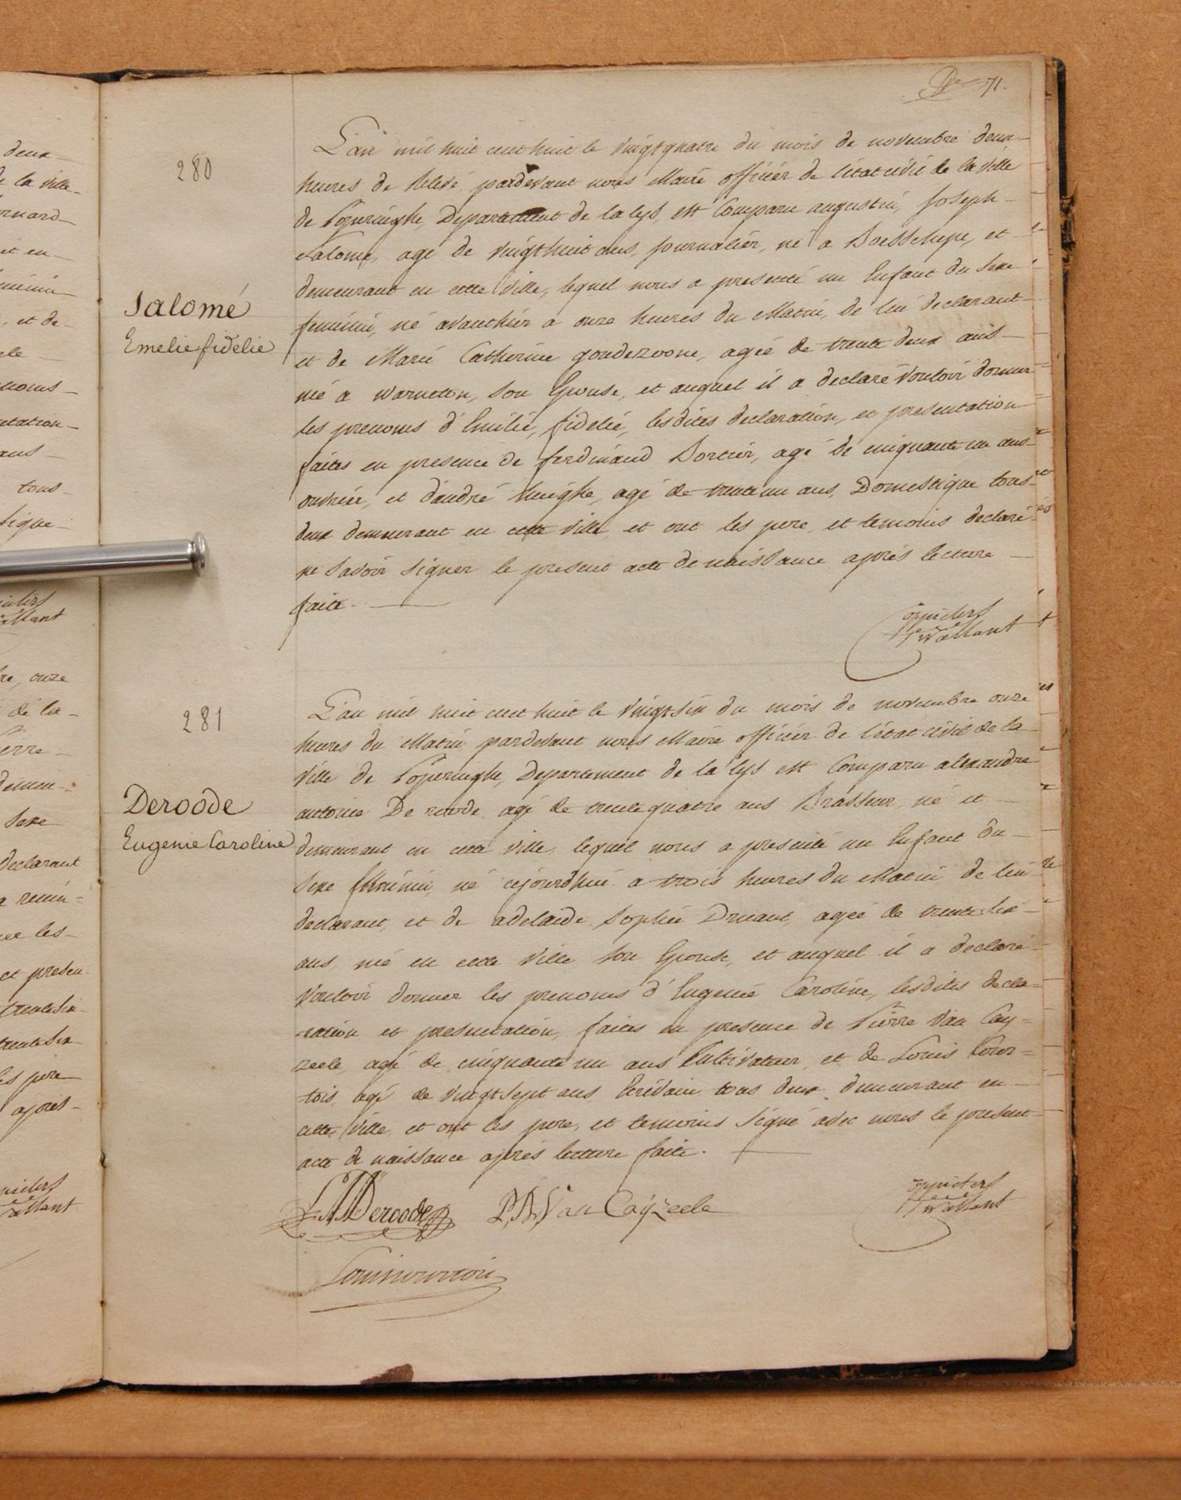 71.
280
Salomé
Emelie fidelie
L'an mil huit cent huit le vingtquatre du mois de novembre deux
heures de Relevé pardevant nous Maire officier de l'état civil de la ville
de Poperinghe, Departement de la lys, est Comparu augustin, Joseph
Salomé, agé de vingthuit ans, journalier, né a Boesschepe, et
demeurant en cette ville, lequel nous a presenté un Enfant du Sexe
feminin, né avanthier a onze heures du Matin, de lui declarant
et de Marie Catherine goudezoone, agée de trente deux ans
né a warneton, son Epouse, et auquel il a declaré vouloir donner
les prenoms d'Emilie, fidelie, lesdites declaration, et presentation
faites en presence de ferdinand Bortier, agé de cinquante un ans
ouvrier, et d'andré huughe, agé de trente un ans, Domestique tous
deux demeurant en cette ville, et ont les pere, et temoins declaré
ne Savoir Signer le present acte de naissance après lecture
faite.
281
Deroode
Eugenie Caroline
L'an mil huit cent huit le vingtsix du mois de novembre onze
heures du Matin pardevant nous Maire officier de l'état civil de la
ville de Poperinghe, Departement de la lys est Comparu alexandre
antoine De roode agé de trente quatre ans Brasseur, né et
demeurant en cette ville, lequel nous a presenté un Enfant du
Sexe feminin, né cejourd'hui a trois heures du Matin de lui
declarant, et de adelaide Sophie Driaut, agée de trente six
ans, né en cette ville son Epouse, et auquel il a declaré
vouloir donner les prenoms d'Eugenie Caroline, lesdites decla-
ration et presentation, faites en presence de Pierre Van Cay-
zeele agé de cinquante un ans Cultivateur, et de Louis Cour-
tois agé de vingtsept ans Ecrivain tous deux demeurant en
cette ville, et ont les pere, et temoins Signé avec nous le present
acte de naissance après lecture faite.
Deroode P. Van Cayzeele